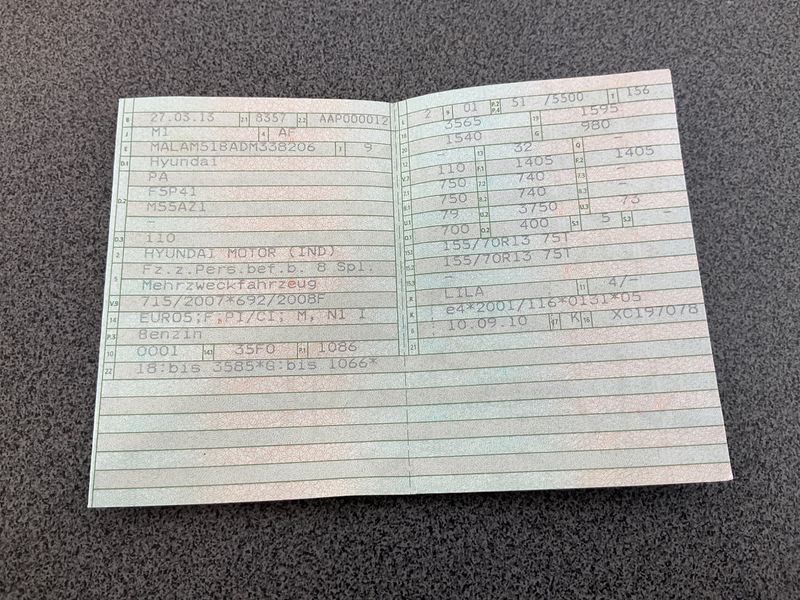 B 27.03.13 2.1 8357 2.2 AAP000012
J M1 4 AF
E MALAM51BADM338206 3 9
D.1 Hyundai
D.2 PA
F5P41
M55AZ1
-
D.3 i10
2 HYUNDAI MOTOR (IND)
5 Fz.z.Pers.bef.b. 8 Spl.
Mehrzweckfahrzeug
V.9 715/2007*692/2008F
14 EURO5;F;PI/CI; M, N1 I
P.3 Benzin
10 0001 14.1 35F0 P.1 1086
22 18:bis 3585*G:bis 1066*
L 2 9 01 P.2 P.4 51 /5500 T 156
18 3565 19 1595
20 1540 G 980
12 - 13 32 Q -
V.7 110 F.1 1405 F.2 1405
7.1 750 7.2 740 7.3 -
8.1 750 8.2 740 8.3 -
U.1 79 U.2 3750 U.3 73
O.1 700 O.2 400 S.1 5 S.2 -
15.1 155/70R13 75T
15.2 155/70R13 75T
15.3 -
R LILA 11 4/-
K e4*2001/116*0131*05
6 10.09.10 17 K 16 XC197078
21